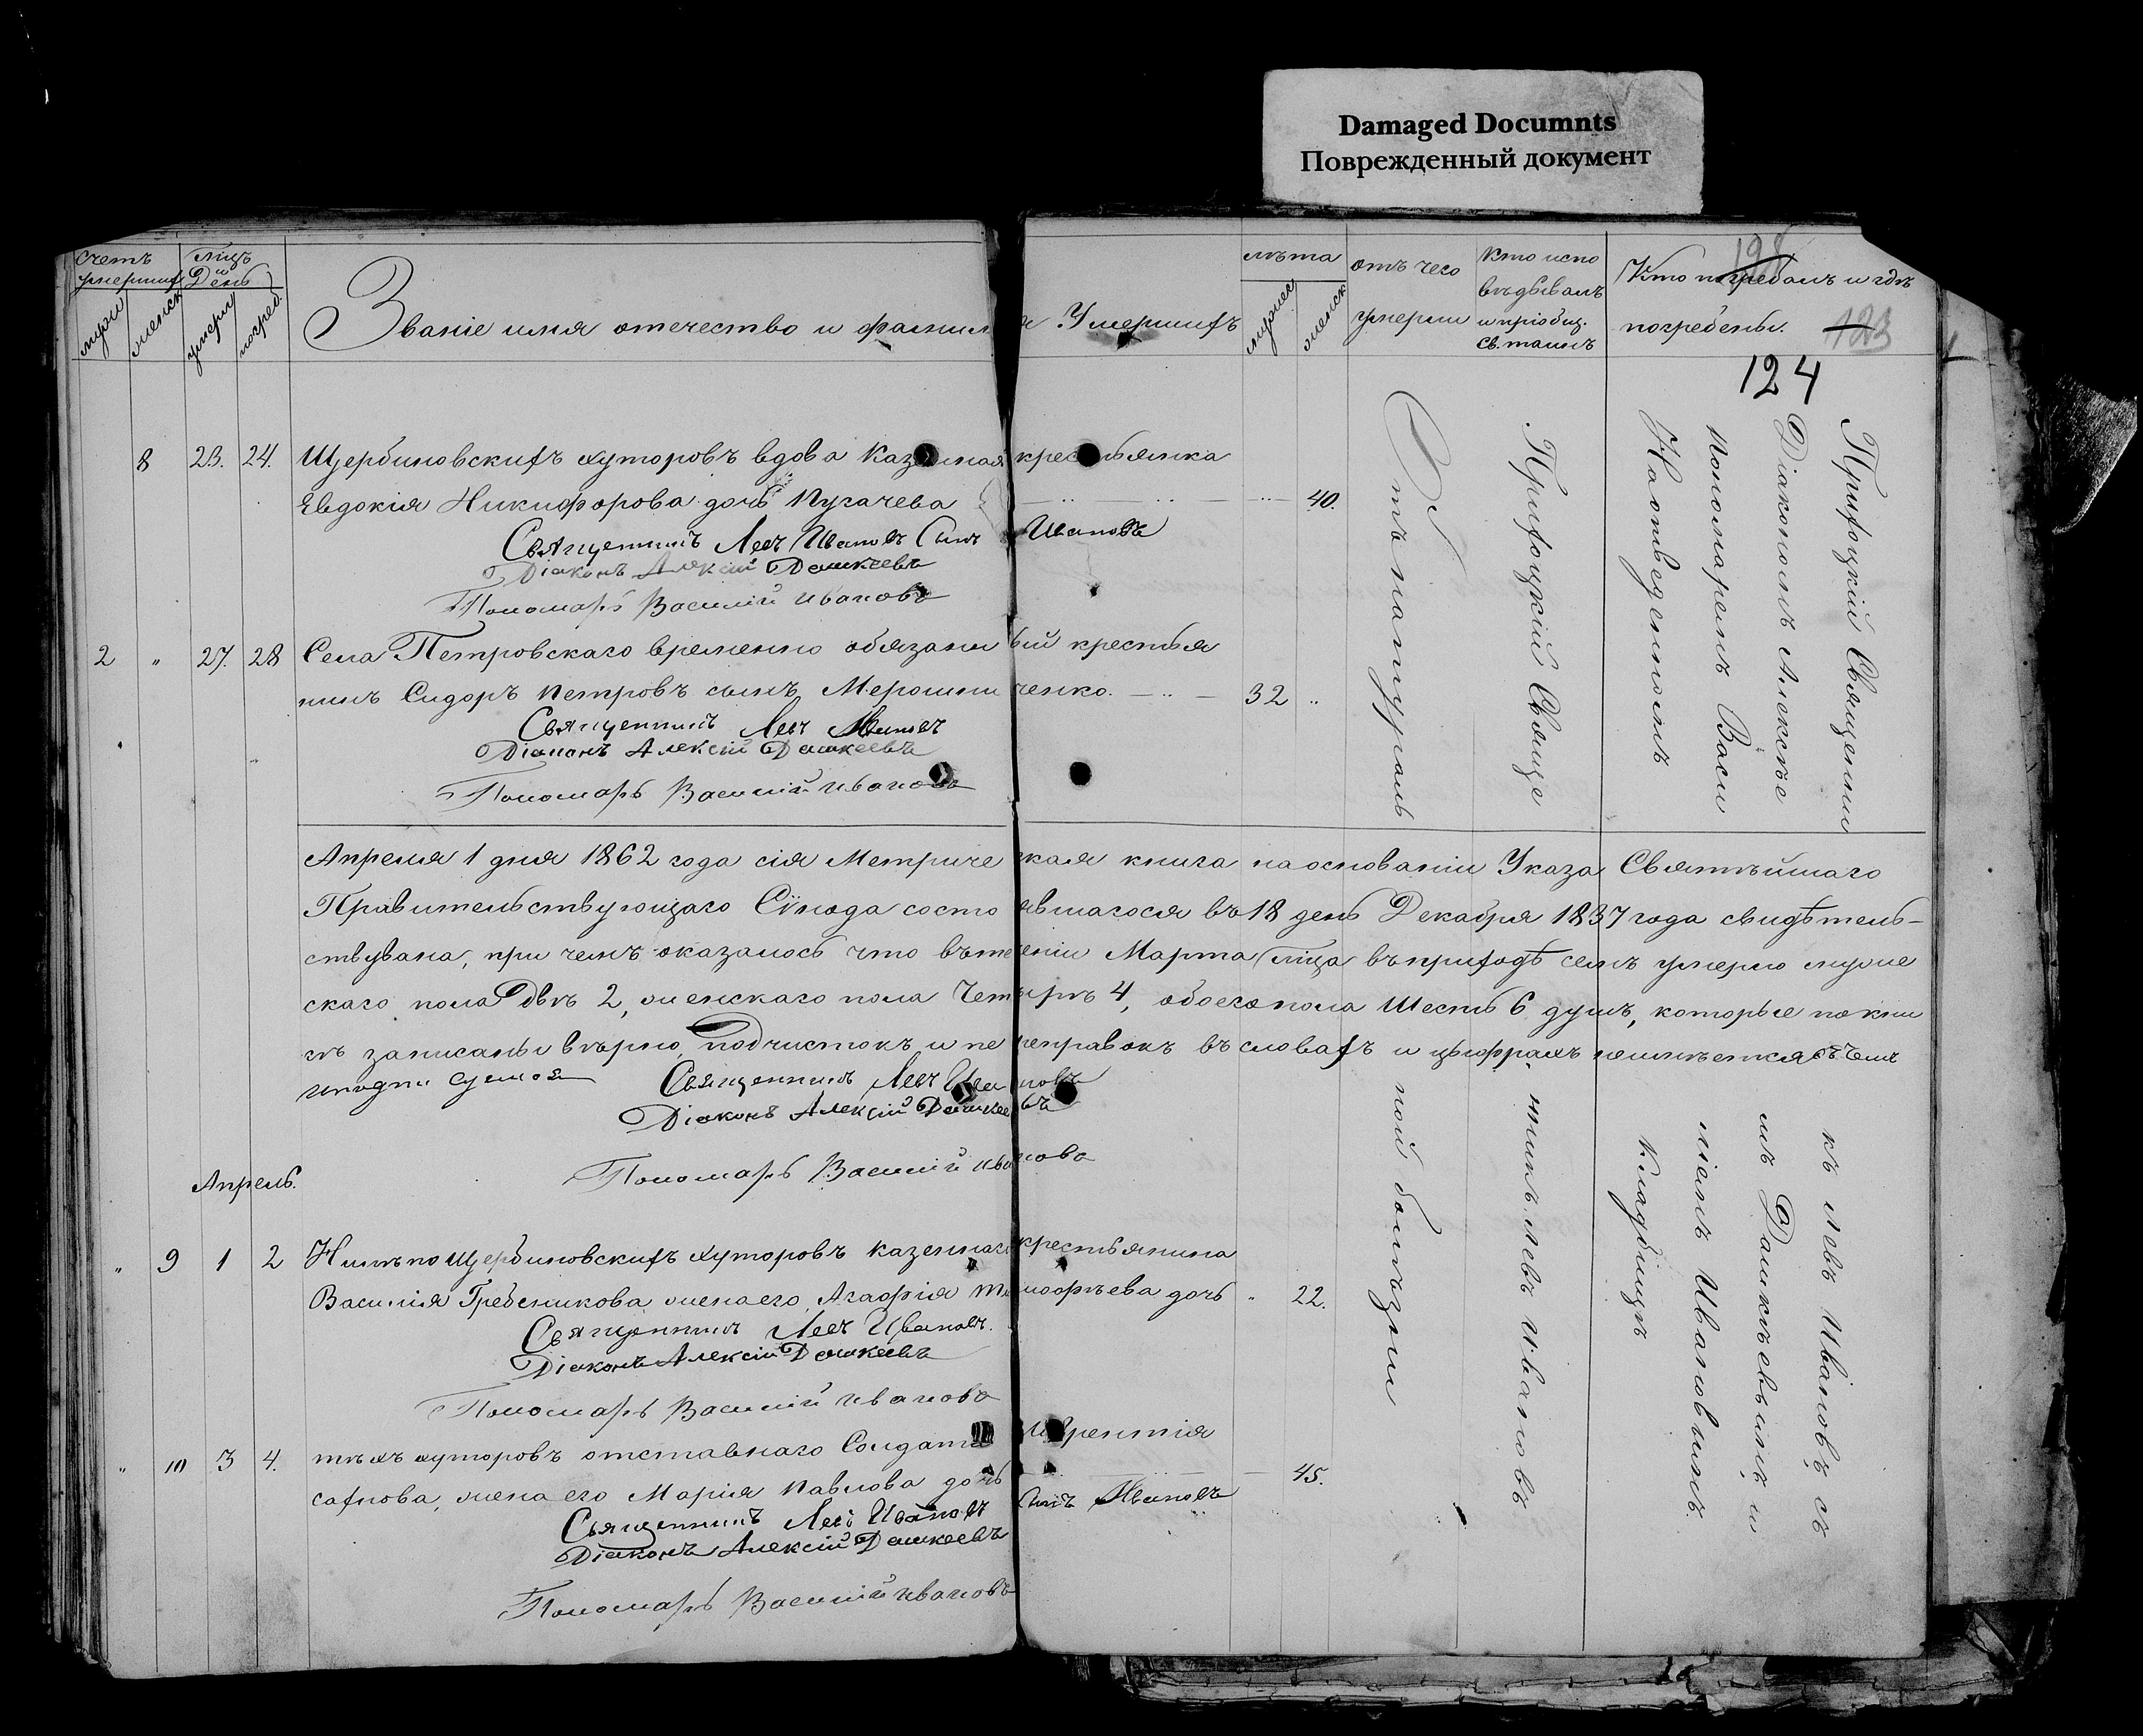 Damaged Documnts
Поврежденный документ
счетъ умершихъ
мцъ и День
Званіе имя отечество и фамилія Умершихъ
лѣта
отъ чего
Кто испо
Кто погребалъ и гдѣ
вѣдывалъ
умерли
и пріобщ.
погребены.
св. таинъ
мужеск
женск
умерш
погреб.
мужеск
женск
198
123
124
8 23. 24. Щербиновскихъ хуторовъ вдова Казенная крестьянка
Евдокія Никифорова дочь Пугачева 40.
Священникъ Левъ Ивановъ Сынъ Ивановъ
Діаконъ Алексій Дашкеевъ
Пономарь Василій Ивановъ
2 " 27. 28 Села Петровскаго временно обязанный крестья
нинъ Сидоръ Петровъ сынъ Мерошниченко. 32 "
Священникъ Левъ Ивановъ
Діаконъ Алексій Дашкеевъ
Пономарь Василій Ивановъ
Апреля 1 дня 1862 года сія Метрическая книга на основаніи Указа Святѣйшаго
Правительствующаго Сѵнода состоявшагося въ 18 день Декабря 1837 года свидѣтель-
ствувана, при чемъ оказалось что въ теченіи Марта мца въ приходѣ семъ умерло муже
скаго пола Двѣ 2, женскаго пола Четырѣ 4, обоего пола Шесть 6 душъ, которые по кни
гѣ записаны вѣрно, подчистокъ и переправокъ въ словахъ и цыфрахъ неимѣется въ чемъ
Священникъ Левъ Ивановъ
Діаконъ Алексій Дашкеевъ
Пономарь Василій Иванова
Апрель.
" 9 1 2 Нижъ по Щербиновскихъ хуторовъ казеннаго крестьянина
Василія Гребеникова жена его Агафія Тимофѣева дочь " 22.
Священникъ Левъ Ивановъ.
Діаконъ Алексій Дашкеевъ
Пономарь Василій Иванова
" 10 3 4. тѣхъ хуторовъ отставнаго Солдата Лаврентія
Сахнова, жена его Марія Павлова дочь 45.
Священникъ Левъ Ивановъ Сынъ Ивановъ
Діаконъ Алексій Дашкеевъ
Пономарь Василій Ивановъ
Отъ натураль
ной болѣзни
Прихоцкій Свяще
нникъ Левъ Ивановъ
Прихоцкій Священни
къ Левъ Ивановъ съ
Діакономъ Алексѣе
мъ Дашкѣевымъ и
пономаремъ Васи
ліемъ Ивановымъ
На отведенномъ
Кладбищѣ